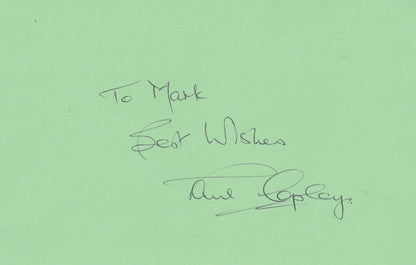 To Mark
Best Wishes
Paul Copley